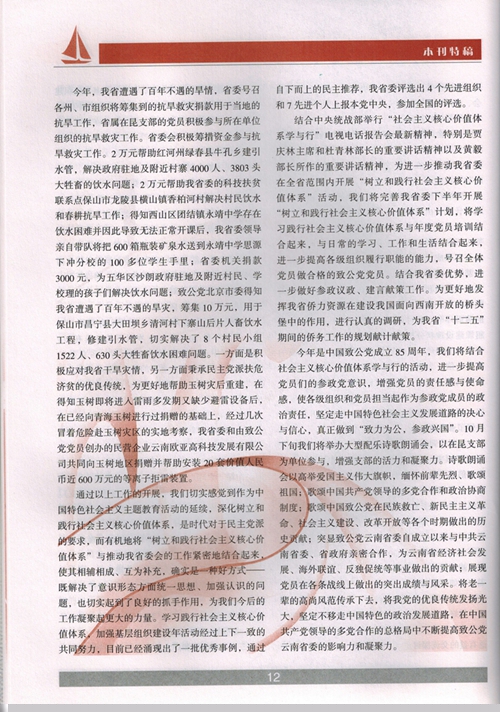 本刊特稿
今年，我省遭遇了百年不遇的旱情，省委号召
各州、市组织将筹集到的抗旱救灾捐款用于当地的
抗旱工作，省属在昆支部的党员积极参与所在单位
组织的抗旱救灾工作。省委会积极筹措资金参与抗
旱救灾工作。2 万元帮助红河州绿春县牛孔乡建引
水管，解决政府驻地及附近村寨 4000 人、3803 头
大牲畜的饮水问题；2 万元帮助我省委的科技扶贫
联系点保山市龙陵县横山镇香柏河村解决村民饮水
和春耕抗旱工作；得知西山区团结镇水靖中学存在
饮水困难并因此导致无法正常开课后，我省委领导
亲自带队将把 600 箱瓶装矿泉水送到水靖中学思源
下冲分校的 100 多位学生手里；省委机关捐款
3000 元，为五华区沙朗政府驻地及附近村民、学
校理的孩子们解决饮水问题；致公党北京市委得知
我省遭遇了百年不遇的旱灾，筹集 10 万元，用于
保山市昌宁县大田坝乡清河村下寨山后片人畜饮水
工程，修建引水管，切实解决了 8 个村民小组
1522 人、630 头大牲畜饮水困难问题。一方面是积
极应对我省干旱灾情，另一方面秉承民主党派扶危
济贫的优良传统，为更好地帮助玉树灾后重建，在
得知玉树即将进入雷雨多发期又缺少避雷设备后，
在已经向青海玉树进行过捐赠的基础上，经过几次
冒着危险赴玉树灾区的实地考察，我省委和由致公
党党员创办的民营企业云南欧亚高科技发展有限公
司共同向玉树地区捐赠并帮助安装 20 套价值人民
币近 600 万元的等离子拒雷装置。
通过以上工作的开展，我们切实感觉到作为中
国特色社会主义主题教育活动的延续，深化树立和
践行社会主义核心价值体系，是时代对于民主党派
的要求，而有机地将“树立和践行社会主义核心价
值体系”与推动我省委会的工作紧密地结合起来，
使其相辅相成、互为补充，确实是一种好方式——
既解决了意识形态方面统一思想、加强认识的问
题，也切实起到了良好的抓手作用，为我们今后的
工作凝聚起更大的力量。学习践行社会主义核心价
值体系，加强基层组织建设年活动经过上下一致的
共同努力，目前已经涌现出了一批优秀事例，通过
自下而上的民主推荐，我省委评选出 4 个先进组织
和 7 先进个人上报本党中央，参加全国的评选。
结合中央统战部举行“社会主义核心价值体
系学与行”电视电话报告会最新精神，特别是贾
庆林主席和杜青林部长的重要讲话精神以及黄毅
部长所作的重要讲话精神，为进一步推动我省委
在全省范围内开展“树立和践行社会主义核心价
值体系”活动，我们将完善我省委下半年开展
“树立和践行社会主义核心价值体系”计划，将学
习践行社会主义核心价值体系与年度党员培训结
合起来，与日常的学习、工作和生活结合起来，
进一步提高各级组织履行职能的能力，号召全体
党员做合格的致公党党员。结合我省委优势，进
一步做好参政议政、建言献策工作。为更好地发
挥我省侨力资源在建设我国面向西南开放的桥头
堡中的作用，进行认真的调研，为我省“十二五”
期间的侨务工作的规划献计献策。
今年是中国致公党成立 85 周年，我们将结合
社会主义核心价值体系学与行的活动，进一步提高
党员们的参政党意识，增强党员的责任感与使命
感，使各级组织和党员担当起作为参政党成员的政
治责任，坚定走中国特色社会主义发展道路的决心
与信心，真正做到“致力为公，参政兴国”。10 月
下旬我们将举办大型配乐诗歌朗诵会，以在昆支部
为单位参与，增强支部的活力和凝聚力。诗歌朗诵
会以高举爱国主义伟大旗帜，缅怀前辈先烈、歌颂
祖国；歌颂中国共产党领导的多党合作和政治协商
制度；歌颂中国致公党在民族救亡、新民主主义革
命、社会主义建设、改革开放等各个时期做出的历
史贡献；突显致公党云南省委自成立以来与中共云
南省委、省政府亲密合作，为云南省经济社会发
展、海外联谊、反独促统等事业做出的贡献；展现
党员在各条战线上做出的突出成绩与风采。将老一
辈的高尚风范传承下去，将我党的优良传统发扬光
大，坚定不移走中国特色的政治发展道路，在中国
共产党领导的多党合作的总格局中不断提高致公党
云南省委的影响力和凝聚力。
12